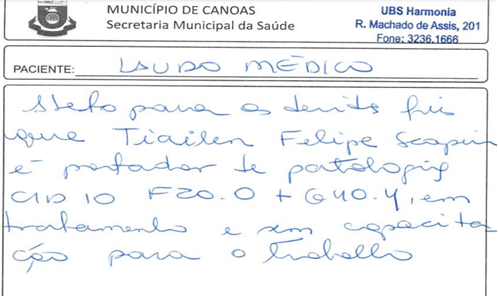 MUNICÍPIO DE CANOAS
Secretaria Municipal da Saúde
UBS Harmonia
R. Machado de Assis, 201
Fone: 3236.1666
PACIENTE: LAUDO MÉDICO
Atesto para os devits fis
que Tiailen Felipe Scapin
é portador de patologia
CID 10 F20.0 + G40.4, em
tratamento e sem capacita
ção para o trabalho